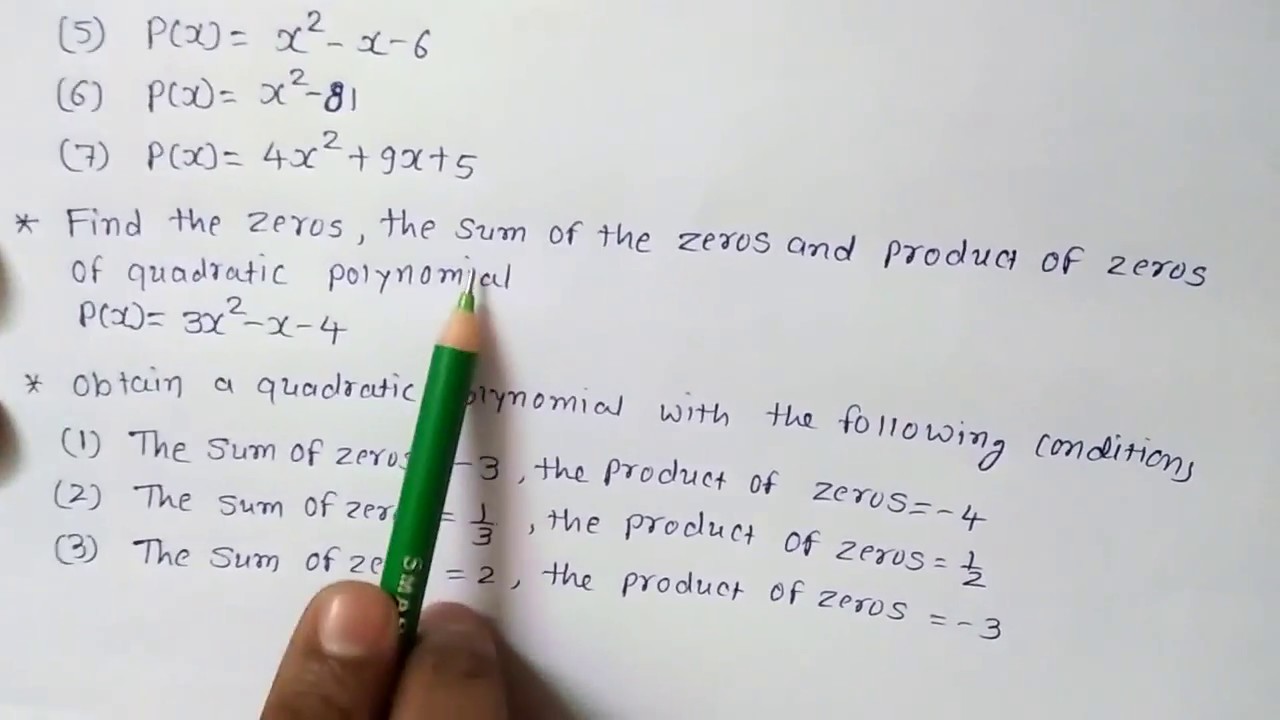 (5) P(x) = x² - x - 6
(6) P(x) = x² - 81
(7) P(x) = 4x² + 9x + 5
* Find the zeros, the sum of the zeros and product of zeros
of quadratic polynomial
P(x) = 3x² - x - 4
* obtain a quadratic polynomial with the following conditions
(1) The sum of zeros -3, the product of zeros = -4
(2) The sum of = 1/3, the product of zeros = 1/2
(3) The sum of = 2, the product of zeros = -3